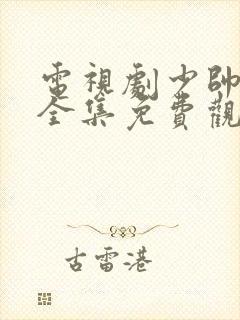 電視劇少帥
全集免費觀
古雷港